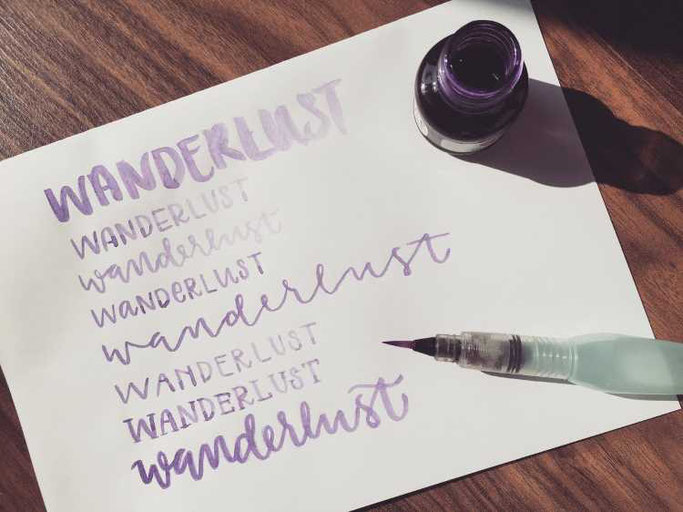 WANDERLUST
WANDERLUST
wanderlust
WANDeRLUST
wanderlust
WANDERLUST
WANDERLUST
wanderlust